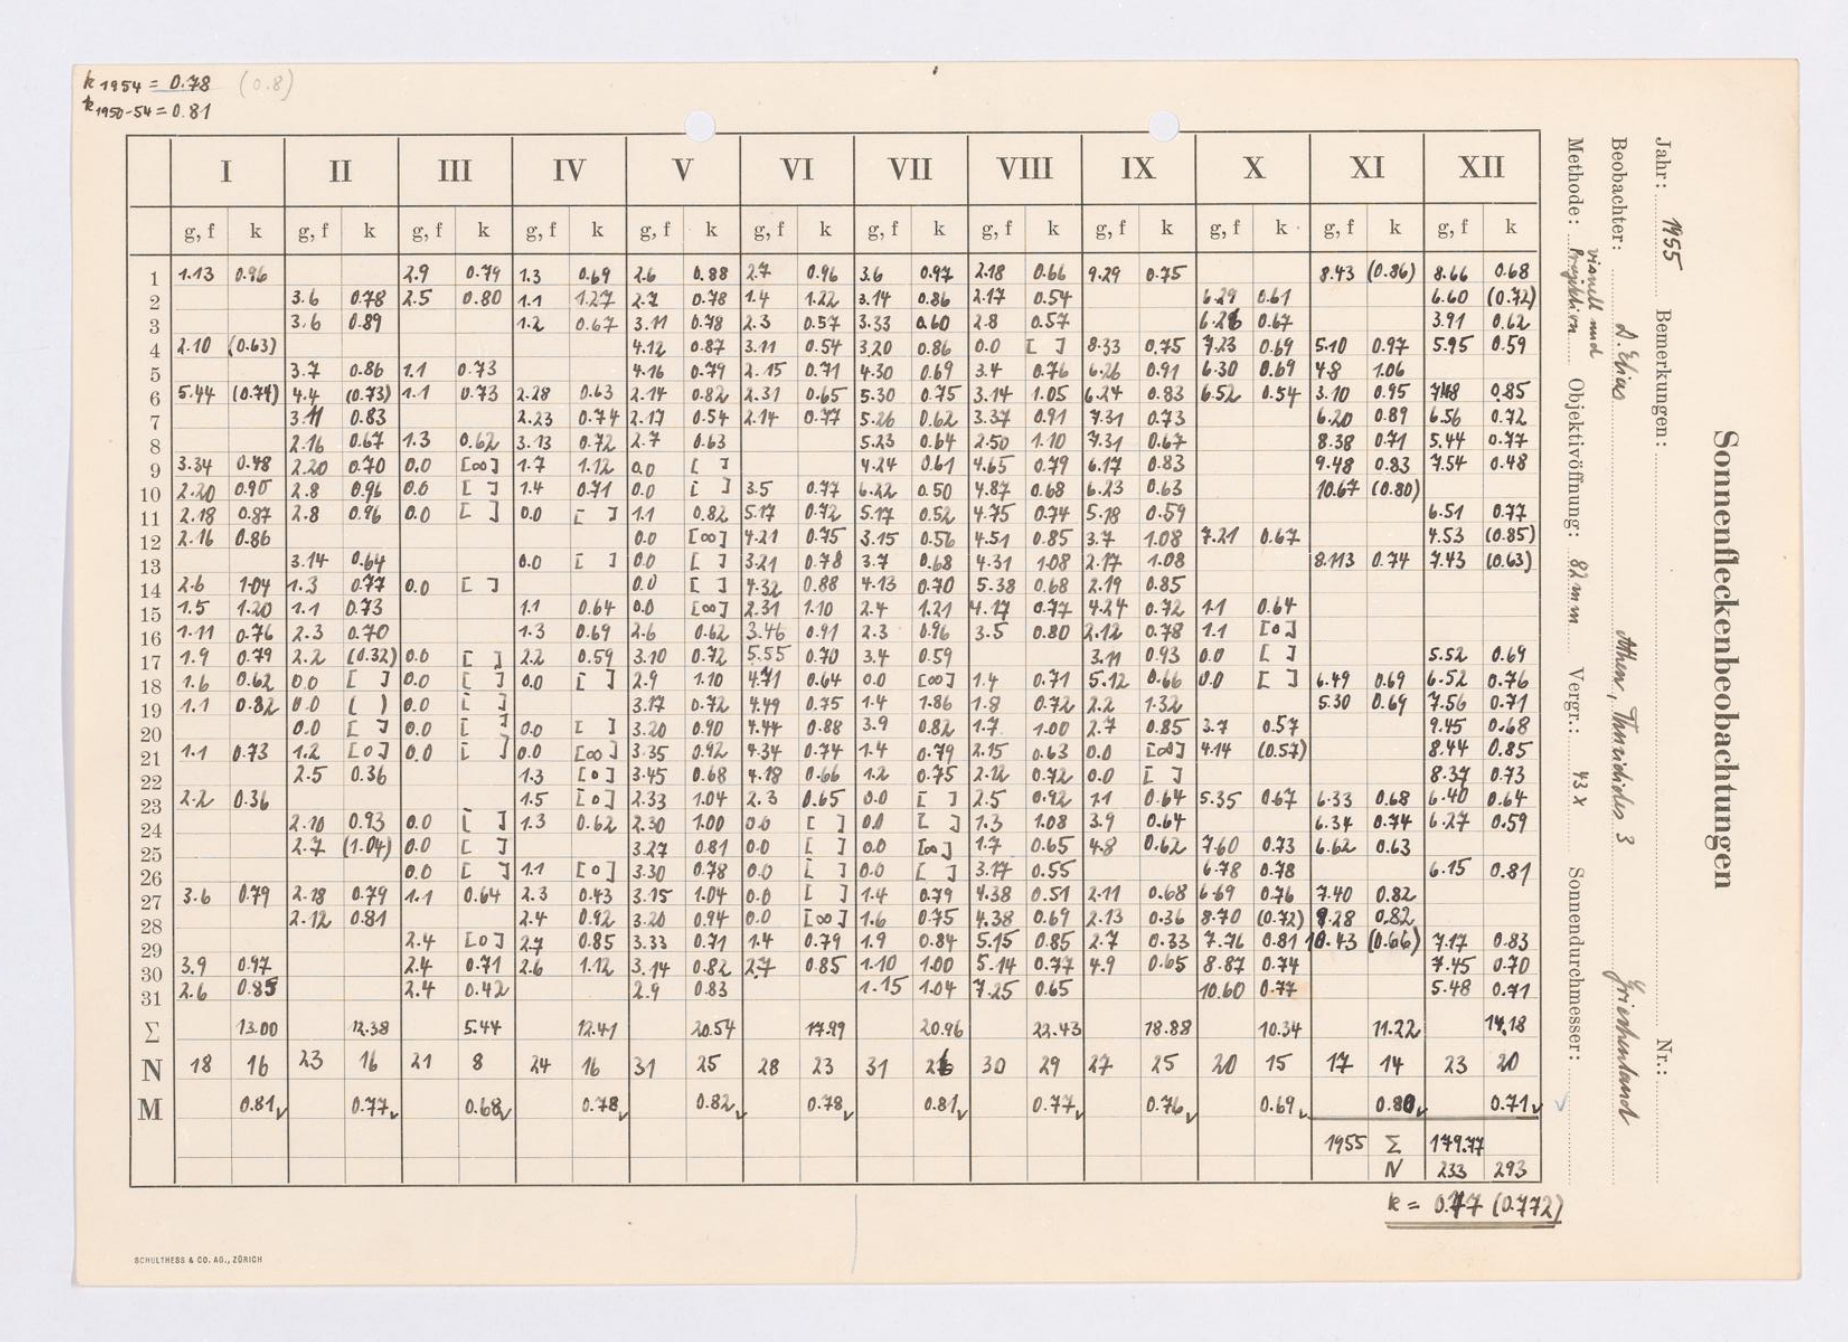 k 1954 = 0.78 (0.8)
k 1950-54 = 0.81
I II III IV V VI VII VIII IX X XI XII
g, f k g, f k g, f k g, f k g, f k g, f k g, f k g, f k g, f k g, f k g, f k g, f k
1 1.13 0.96 2.9 0.79 1.3 0.69 2.6 0.88 2.7 0.96 3.6 0.97 2.18 0.66 9.29 0.75 8.43 (0.86) 8.66 0.68
2 3.6 0.78 2.5 0.80 1.1 1.27 2.7 0.78 1.4 1.22 3.14 0.86 2.17 0.54 6.29 0.61 6.60 (0.72)
3 3.6 0.89 1.2 0.67 3.11 0.78 2.3 0.57 3.33 0.60 2.8 0.57 6.26 0.67 3.91 0.62
4 2.10 (0.63) 4.12 0.87 3.11 0.54 3.20 0.86 0.0 [ ] 8.33 0.75 7.23 0.69 5.10 0.97 5.95 0.59
5 3.7 0.86 1.1 0.73 4.16 0.79 2.15 0.71 4.30 0.69 3.4 0.76 6.26 0.91 6.30 0.69 4.8 1.06
6 5.44 (0.74) 4.4 (0.73) 1.1 0.73 2.28 0.63 2.14 0.82 2.31 0.65 5.30 0.75 3.14 1.05 6.24 0.83 6.52 0.54 3.10 0.95 7.48 0.85
7 3.11 0.83 2.23 0.74 2.17 0.54 2.14 0.77 5.26 0.62 3.37 0.91 7.31 0.73 6.20 0.89 6.56 0.72
8 2.16 0.67 1.3 0.62 3.13 0.72 2.7 0.63 5.23 0.64 2.50 1.10 7.31 0.67 8.38 0.71 5.44 0.77
9 3.34 0.48 2.20 0.70 0.0 [∞] 1.7 1.12 0.0 [ ] 4.24 0.61 4.65 0.79 6.17 0.83 9.48 0.83 7.54 0.48
10 2.20 0.90 2.8 0.96 0.0 [ ] 1.4 0.71 0.0 [ ] 3.5 0.77 6.22 0.50 4.87 0.68 6.23 0.63 10.67 (0.80)
11 2.18 0.87 2.8 0.96 0.0 [ ] 0.0 [ ] 1.1 0.82 5.17 0.72 5.17 0.52 4.75 0.74 5.18 0.59 6.51 0.77
12 2.16 0.86 0.0 [∞] 4.21 0.75 3.15 0.56 4.51 0.85 3.7 1.08 7.21 0.67 4.53 (0.85)
13 3.14 0.64 0.0 [ ] 0.0 [ ] 3.21 0.78 3.7 0.68 4.31 1.08 2.17 1.08 8.113 0.74 7.43 (0.63)
14 2.6 1.04 1.3 0.77 0.0 [ ] 0.0 [ ] 4.32 0.88 4.13 0.70 5.38 0.68 2.19 0.85
15 1.5 1.20 1.1 0.73 1.1 0.64 0.0 [∞] 2.31 1.10 2.4 1.21 4.17 0.77 4.24 0.72 1.1 0.64
16 1.11 0.76 2.3 0.70 1.3 0.69 2.6 0.62 3.46 0.91 2.3 0.96 3.5 0.80 2.12 0.78 1.1 [0]
17 1.9 0.79 2.2 (0.32) 0.0 [ ] 2.2 0.59 3.10 0.72 5.55 0.70 3.4 0.59 3.11 0.93 0.0 [ ] 5.52 0.69
18 1.6 0.62 0.0 [ ] 0.0 [ ] 0.0 [ ] 2.9 1.10 4.71 0.64 0.0 [∞] 1.4 0.71 5.12 0.66 0.0 [ ] 6.49 0.69 6.52 0.76
19 1.1 0.82 0.0 ( ) 0.0 [ ] 3.17 0.72 4.49 0.75 1.4 1.86 1.8 0.72 2.2 1.32 5.30 0.69 7.56 0.71
20 0.0 [ ] 0.0 [ ] 0.0 [ ] 3.20 0.90 4.44 0.88 3.9 0.82 1.7 1.00 2.7 0.85 3.7 0.57 9.45 0.68
21 1.1 0.73 1.2 [0] 0.0 [ ] 0.0 [∞] 3.35 0.92 4.34 0.74 1.4 0.79 2.15 0.63 0.0 [∞] 4.14 (0.57) 8.44 0.85
22 2.5 0.36 1.3 [0] 3.45 0.68 4.18 0.66 1.2 0.75 2.12 0.72 0.0 [ ] 8.37 0.73
23 2.2 0.36 1.5 [0] 2.33 1.04 2.3 0.65 0.0 [ ] 2.5 0.92 1.1 0.64 5.35 0.67 6.33 0.68 6.40 0.64
24 2.10 0.93 0.0 [ ] 1.3 0.62 2.30 1.00 0.0 [ ] 0.0 [ ] 1.3 1.08 3.9 0.64 6.34 0.74 6.27 0.59
25 2.7 (1.04) 0.0 [ ] 3.27 0.81 0.0 [ ] 0.0 [∞] 1.7 0.65 4.8 0.62 7.60 0.73 6.62 0.63
26 0.0 [ ] 1.1 [0] 3.30 0.78 0.0 [ ] 0.0 [ ] 3.17 0.55 6.78 0.78 6.15 0.81
27 3.6 0.79 2.18 0.79 1.1 0.64 2.3 0.43 3.15 1.04 0.0 [ ] 1.4 0.79 4.38 0.51 2.11 0.68 6.69 0.76 7.40 0.82
28 2.12 0.81 2.4 0.92 3.20 0.94 0.0 [∞] 1.6 0.75 4.38 0.69 2.13 0.36 8.70 (0.72) 9.28 0.82
29 2.4 [0] 2.7 0.85 3.33 0.71 1.4 0.79 1.9 0.84 5.15 0.85 2.7 0.33 7.76 0.81 10.43 (0.66) 7.17 0.83
30 3.9 0.97 2.4 0.71 2.6 1.12 3.14 0.82 2.7 0.85 1.10 1.00 5.14 0.77 4.9 0.65 8.87 0.74 7.45 0.70
31 2.6 0.85 2.4 0.42 2.9 0.83 1.15 1.04 7.25 0.65 10.60 0.77 5.48 0.71
Σ 13.00 12.38 5.44 12.41 20.54 17.99 20.96 22.43 18.88 10.34 11.22 14.18
N 18 16 23 16 21 8 24 16 31 25 28 23 31 26 30 29 27 25 20 15 17 14 23 20
M 0.81 0.77 0.68 0.78 0.82 0.78 0.81 0.77 0.76 0.69 0.80 0.71
1955 Σ 179.77
N 233 293
k = 0.77 (0.772)
SCHULTHESS & CO. AG., ZÜRICH
Sonnenfleckenbeobachtungen
Jahr: 1955 Bemerkungen: Nr.:
Beobachter: D. Elias Athen, Thukidides 3 Griechenland
Methode: visuell und Projektion Objektivöffnung: 82 mm Vergr.: 43 x Sonnendurchmesser: